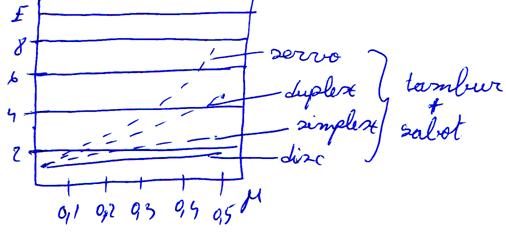 E
8
6
4
2
0,1 0,2 0,3 0,4 0,5 μ
servo
duplex
simplex
disc
tambur
+
sabot